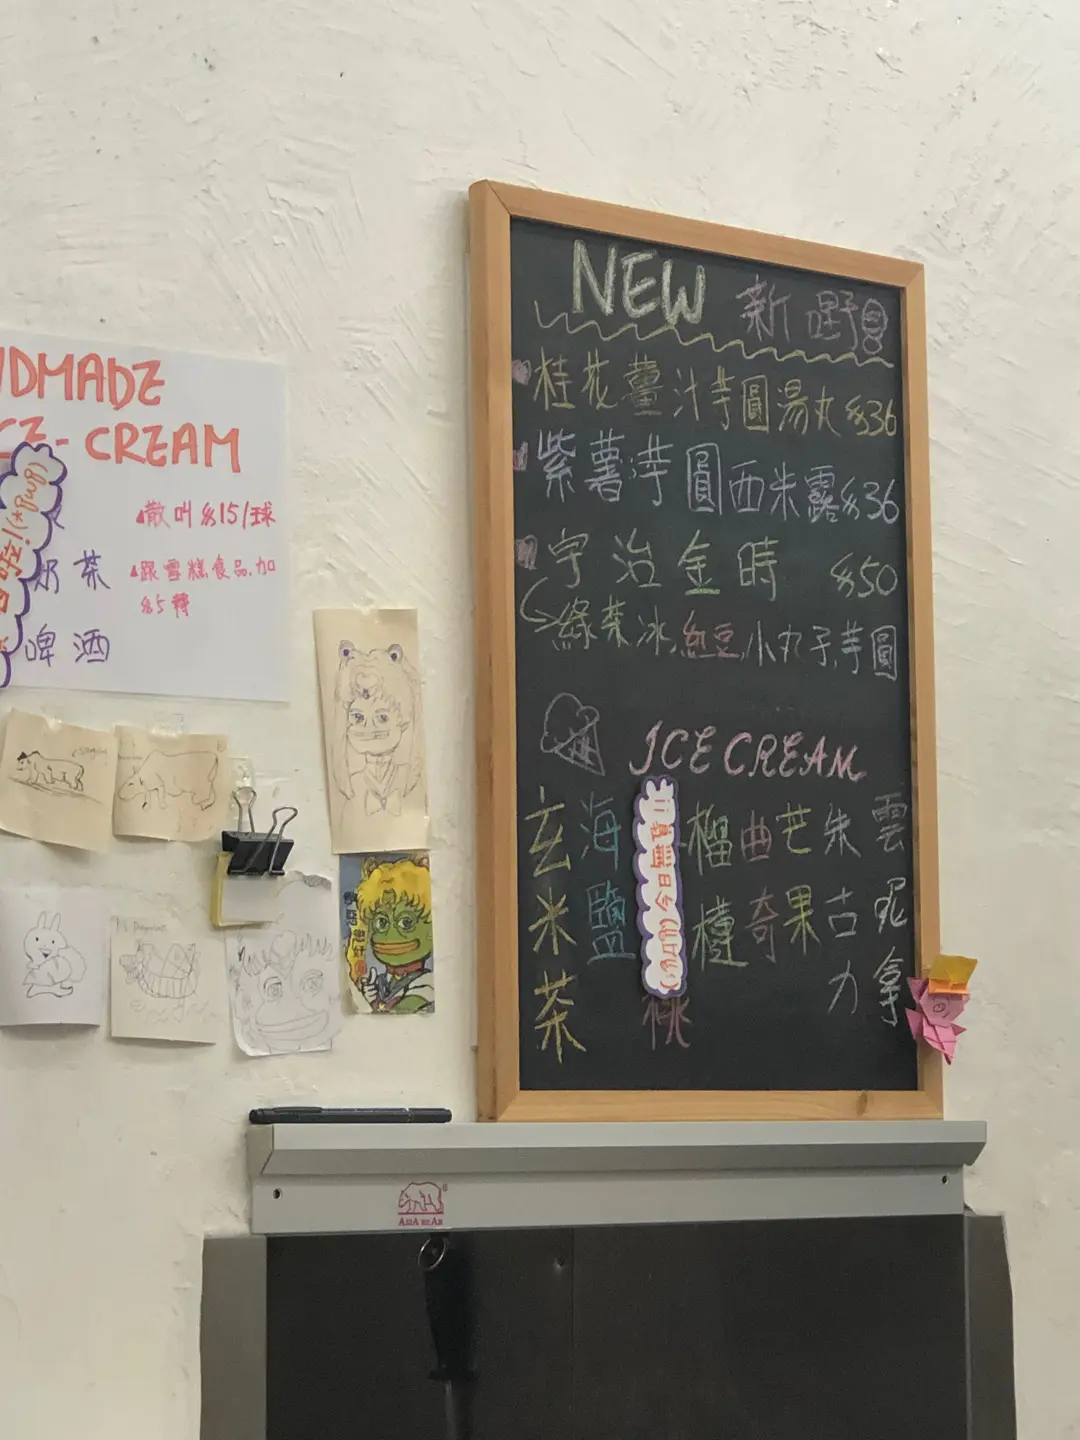 NDMADE
CE-CREAM
散叫 $15/球
跟雪糕食品加
$5轉
奶茶
啤酒
NEW 新嘢
桂花薑汁芋圓湯丸 $36
紫薯芋圓西米露 $36
宇治金時 $50
綠茶冰,紅豆,小丸子,芋圓
ICE CREAM
雲呢拿
朱古力
芒果
曲奇
榴槤
桃
今日無
海鹽
玄米茶
ASIA BEAR